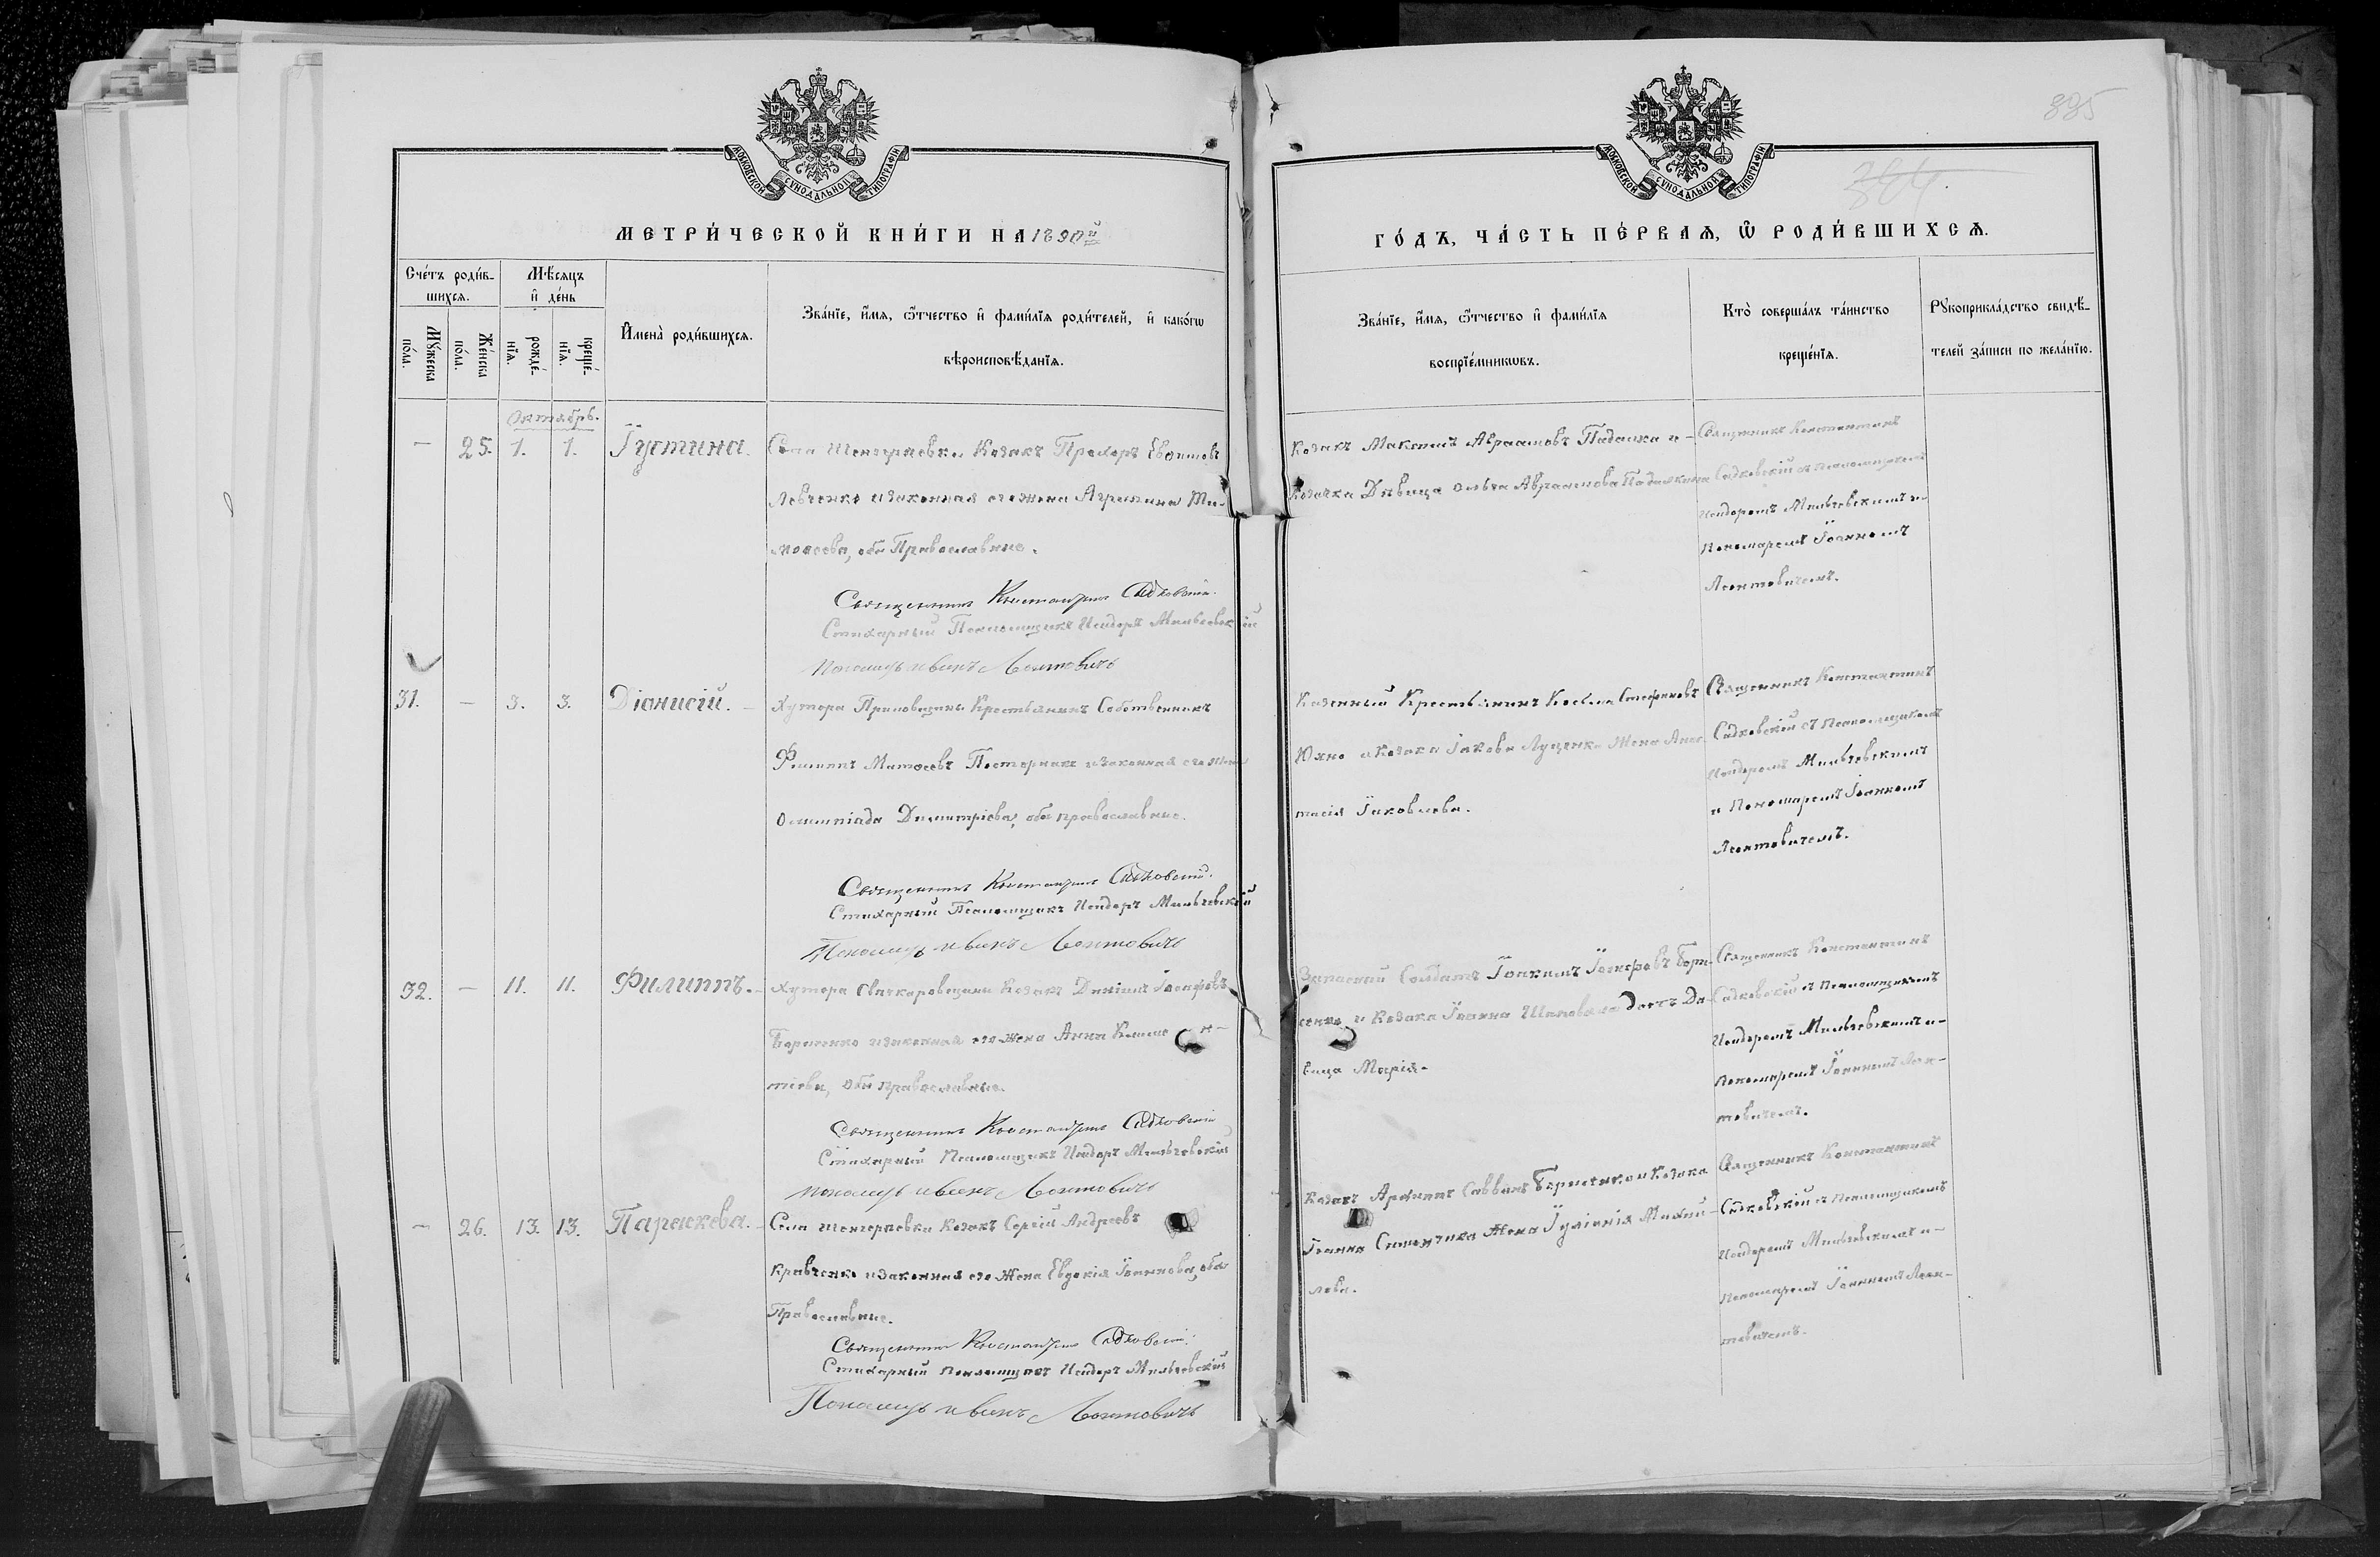 МОСКОВСКОЙ СѴНОДАЛЬНОЙ ТИПОГРАФІИ
МЕТРИ́ЧЕСКОЙ КНИ́ГИ НА 1890й
Сче́тъ роди́в-
шихсѧ.
Мꙋ́жеска
по́ла.
Же́нска
по́ла.
Мѣ́сяцъ
и҆ де́нь
рожде́-
нїѧ.
креще́-
нїѧ.
И҆мена̀ роди́вшихсѧ.
Зва́нїе, и҆́мѧ, ѻ҆́тчество и҆ фами́лїѧ роди́телей, и҆ како́гѡ
вѣроисповѣ́данїѧ.
Октябрь.
— 25. 1. 1. Іустина.
Села Козакъ Прохоръ
Левченко и законная его жена Агрипина Ти-
моѳеева, оба Православные.
Священникъ Константинъ Садковскій.
Стихарный Псаломщикъ Исидоръ
Пономарь Иванъ Леонтовичъ
31. — 3. 3. Діонисій.
Хутора Крестьянинъ Собственникъ
Филиппъ Пастернакъ и законная его жена
Олимпіада Димитріева, оба православные.
Священникъ Константинъ Садковскій.
Стихарный Псаломщикъ Исидоръ
Пономарь Иванъ Леонтовичъ
32. — 11. 11. Филиппъ.
Хутора Козакъ Іосифовъ
Борисенко и законная его жена Анна
тіева, оба православные.
Священникъ Константинъ Садковскій
Стихарный Псаломщикъ Исидоръ
Пономарь Иванъ Леонтовичъ
— 26. 13. 13. Параскева.
Села Козакъ Сергій Андреевъ
Кравченко и законная его жена Евдокія Іоаннова, оба
Православные.
Священникъ Константинъ Садковскій.
Стихарный Псаломщикъ Исидоръ
Пономарь Иванъ Леонтовичъ
895
364.
МОСКОВСКОЙ СѴНОДАЛЬНОЙ ТИПОГРАФІИ
ГО́ДЪ, ЧА́СТЬ ПЕ́РВАѦ, Ѡ҆ РОДИ́ВШИХСѦ.
Зва́нїе, и҆́мѧ, ѻ҆́тчество и҆ фами́лїѧ
воспрїе́мникѡвъ.
Кто̀ соверша́лъ та́инство
креще́нїѧ.
Рꙋкоприкла́дство свидѣ́-
телей за́писи по жела́нїю.
Козакъ Максимъ Авраамовъ Падалка и
Козачка Дѣвица Ольга Авраамова Падалкина
Священникъ Константинъ
Садковскій съ Псаломщикомъ
Исидоромъ и
Пономаремъ Іоанномъ
Леонтовичемъ.
Казенный Крестьянинъ Косьма Стефановъ
Юхно и Козака Іакова Луценка Жена Анас-
тасія Іаковлева.
Священникъ Константинъ
Садковскій съ Псаломщикомъ
Исидоромъ
и Пономаремъ Іоанномъ
Леонтовичемъ.
Запасный Солдатъ Іоакимъ Іосифовъ Бори-
сенко и Козака Іоанна Дочь Дѣ-
вица Марія.
Священникъ Константинъ
Садковскій съ Псаломщикомъ
Исидоромъ и
Пономаремъ Іоанномъ Леон-
товичемъ.
Козакъ Саввинъ Борисенко и Козака
Іоанна Жена Іуліанія Михай-
лова.
Священникъ Константинъ
Садковскій съ Псаломщикомъ
Исидоромъ и
Пономаремъ Іоанномъ Леон-
товичемъ.